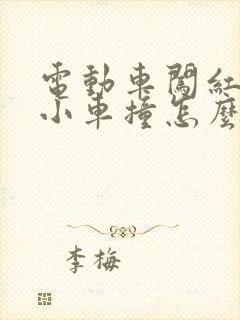 電動車闖紅
小車撞怎麼
李梅